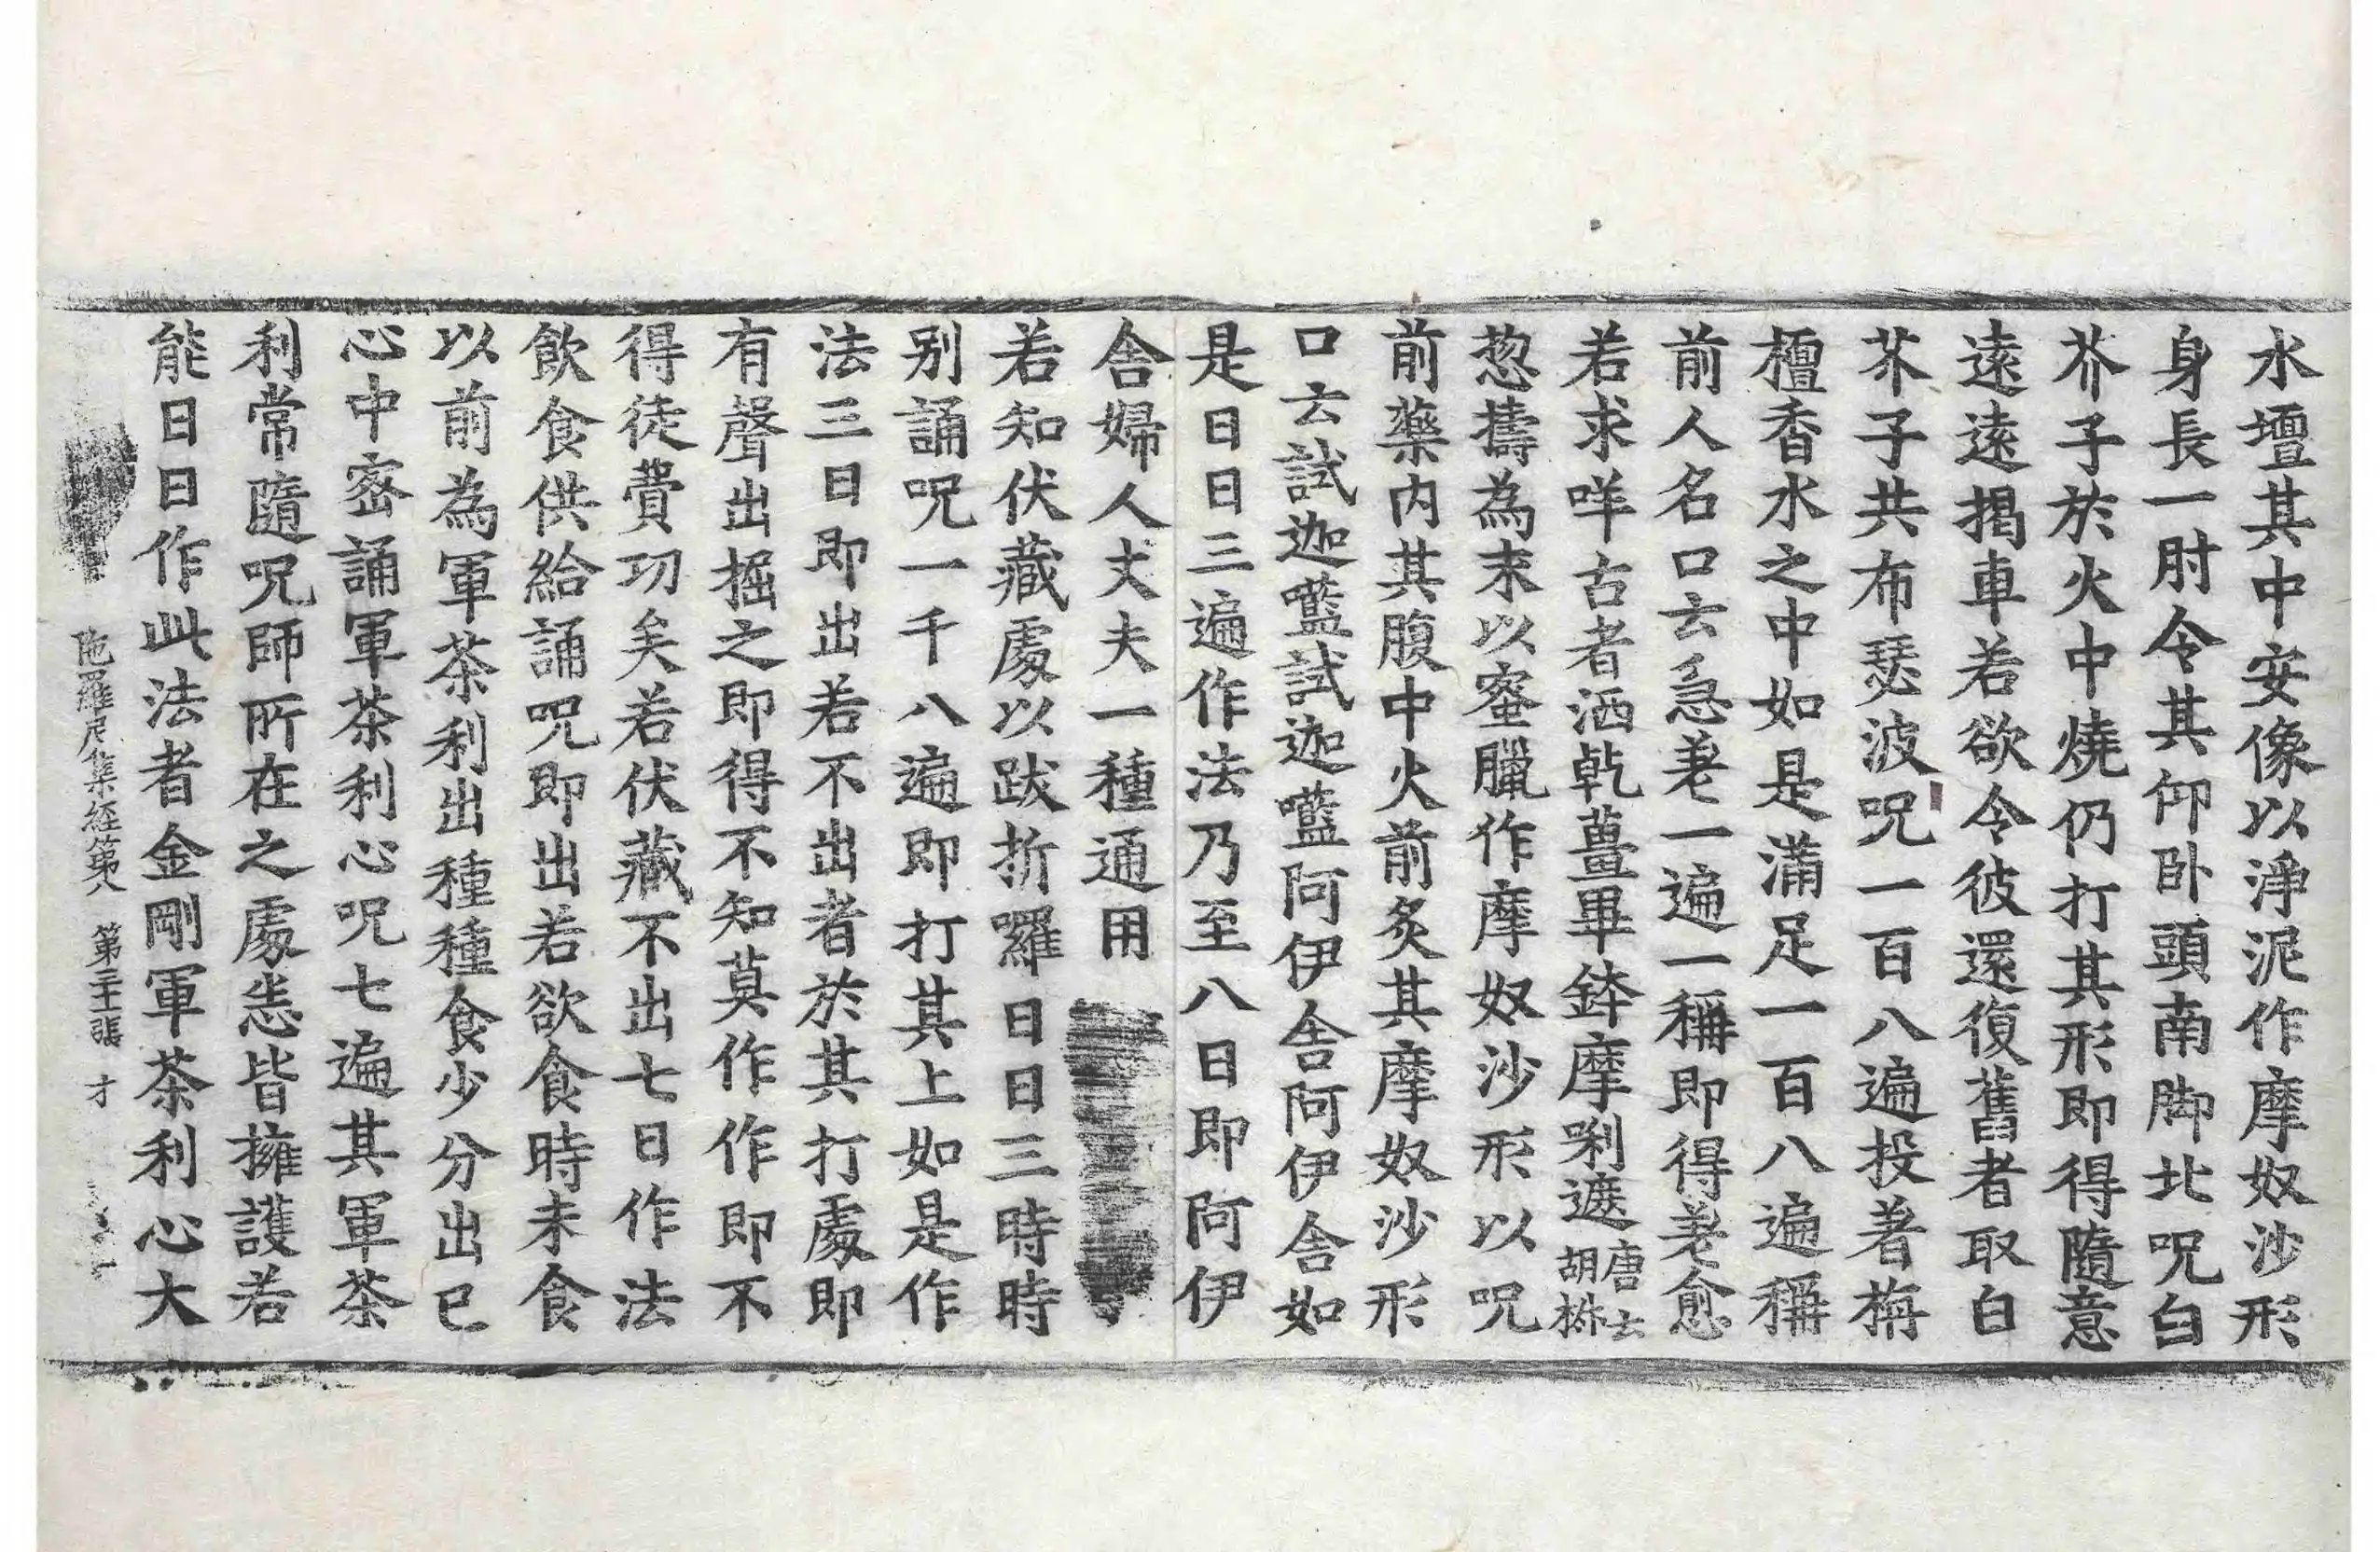 水壇其中安像以淨泥作摩奴沙形
身長一肘令其仰卧頭南脚北呪白
芥子於火中燒仍打其形即得隨意
遠遠遠揭車若欲令彼還復舊者取白
芥子共布瑟波呪一百八遍投著栴
檀香水之中如是滿足一百八遍稱
前人名口云急差一遍一稱即得差愈
若求咩古者洒乾薑畢鉢摩唎遮唐云胡椒
怱擣為末以蜜臘作摩奴沙形以呪
前藥内其腹中火前炙其摩奴沙形
口云試迦㘕試迦㘕阿伊舎阿伊舍如
是日日三遍作法乃至八日即阿伊
舎婦人丈夫一種通用
若知伏藏處以跋折囉日日三時時
别誦呪一千八遍即打其上如是作
法三日即出若不出者於其打處即
有聲出掘之即得不知莫作作即不
得徒費功矣若伏藏不出七日作法
飲食供給誦呪即出若欲食時未食
以前為軍茶利出種種食少分出已
心中密誦軍茶利心呪七遍其軍茶
利常隨呪師所在之處恙皆擁護若
能日日作此法者金剛軍茶利心大
陁羅尼集經第八 第三十二張 才